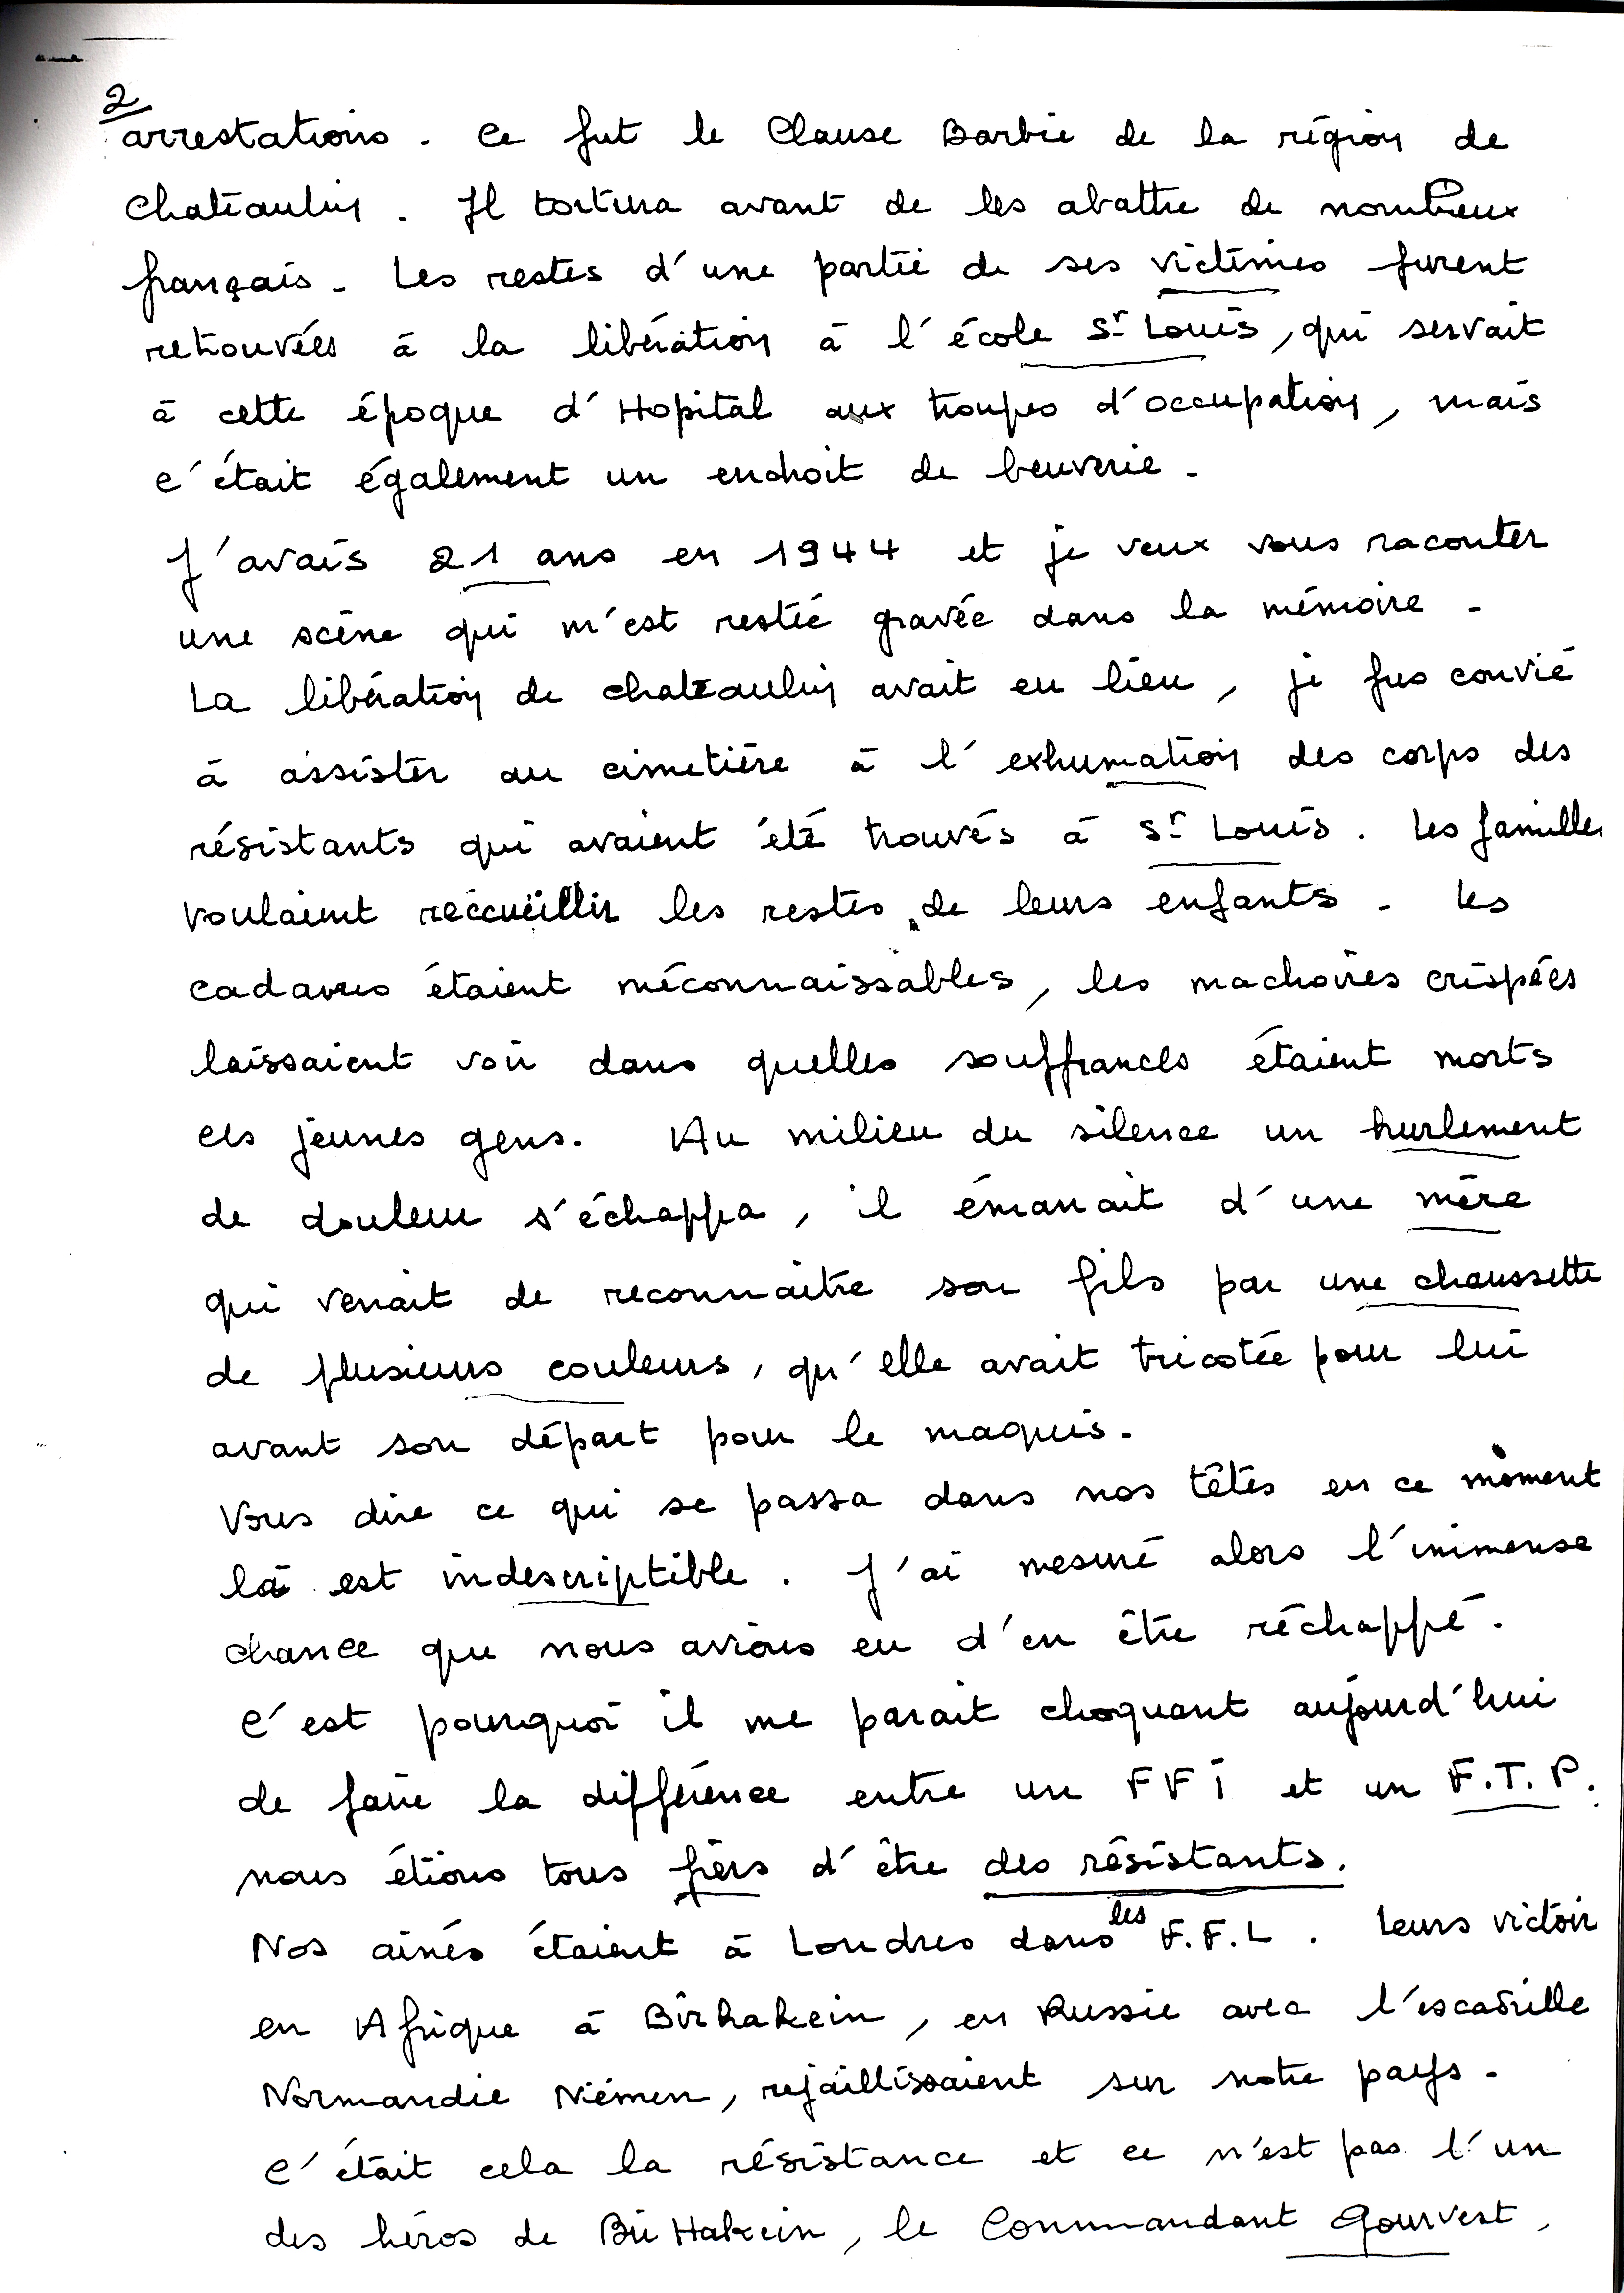 2
arrestations. Ce fut le Clause Barbie de la région de
Chateaulin. Il tortura avant de les abattre de nombreux
français. Les restes d'une partie de ses victimes furent
retrouvées à la libération à l'école St Louis, qui servait
à cette époque d'Hopital aux troupes d'occupation, mais
c'était également un endroit de beuverie.
J'avais 21 ans en 1944 et je veux vous raconter
une scène qui m'est restée gravée dans la mémoire.
La libération de chateaulin avait eu lieu, je fus convié
à assister au cimetière à l'exhumation des corps des
résistants qui avaient été trouvés à St Louis. Les familles
voulaient reccueillir les restes de leurs enfants. Les
cadavres étaient méconnaissables, les machoires crispées
laissaient voir dans quelles souffrances étaient morts
ces jeunes gens. Au milieu du silence un hurlement
de douleur s'échappa, il émanait d'une mère
qui venait de reconnaitre son fils par une chaussette
de plusieurs couleurs, qu'elle avait tricotée pour lui
avant son départ pour le maquis.
Vous dire ce qui se passa dans nos têtes en ce moment
là est indescriptible. J'ai mesuré alors l'immense
chance que nous avions eu d'en être réchappé.
C'est pourquoi il me parait choquant aujourd'hui
de faire la différence entre un FFI et un F.T.P.
nous étions tous fiers d'être des résistants.
Nos ainés étaient à Londres dans les F.F.L. Leurs victoir
en Afrique à Birhakein, en Russie avec l'escadrille
Normandie Niémen, rejaillissaient sur notre pays.
C'était cela la résistance et ce n'est pas l'un
des héros de Bir Hakein, le Commandant Gourvest,